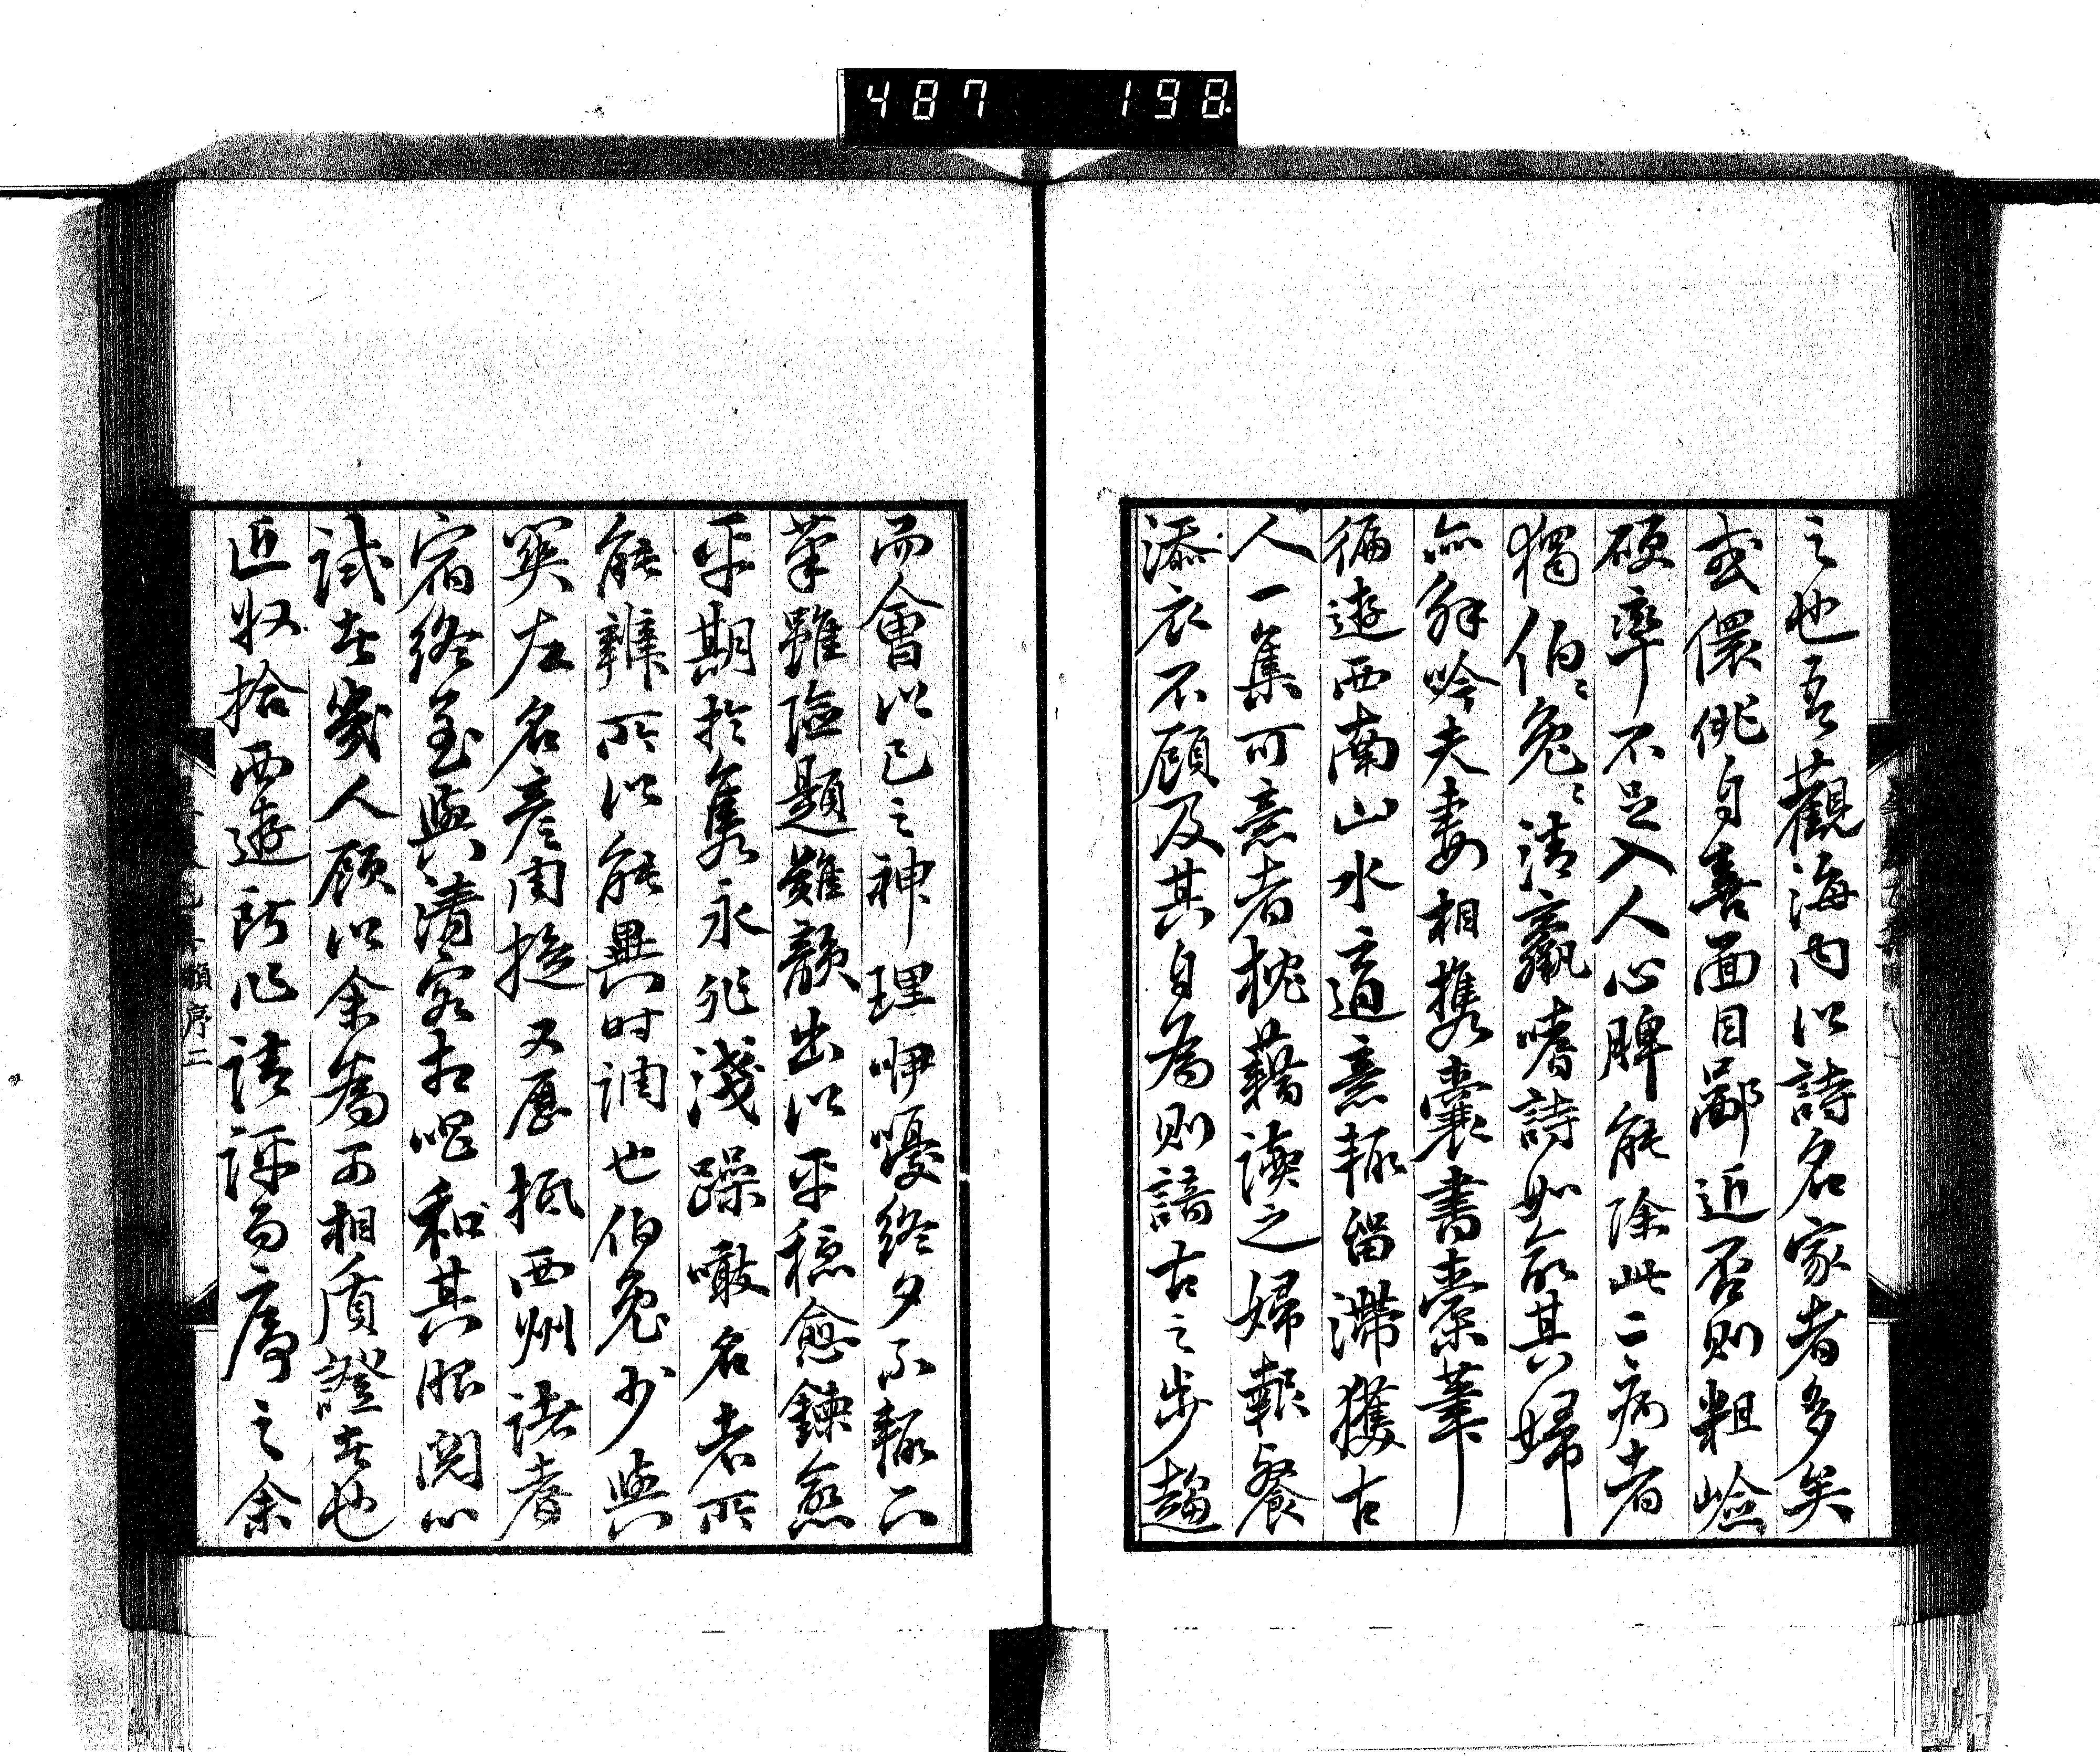 487 198
之也吾觀海內以詩名家者多矣
或儇佻自喜面目鄙近否則粗嶮
硬率不足入人心脾能除此二病者
獨伯兔〻清羸嗜詩如命其婦
亦解吟夫妻相攜囊書橐筆
徧遊西南山水適意輒留滯獲古
人一集可意者枕藉讀之婦報餐
添衣不顧及其自為則諳古之步趨
而會以己之神理咿嚘終夕不輟下
筆雖險題難韻出以平穩愈鍊愈
平期於雋永非淺躁噉名者所
能辨所以能異時調也伯兔少與
左名彥周旋又歷抵西州諸耆
宿終至與清客相唱和其眼閱心
試者幾人顧以余為可相質證者也
近收拾西遊所作請評而序之余
賴序二